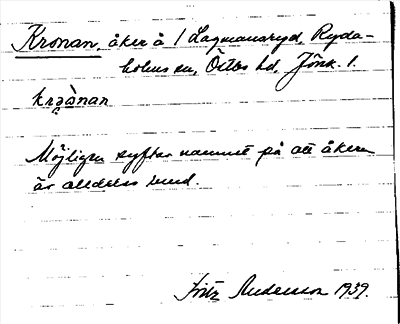 Kronan, åker å 1 Lagmansryd, Ryda-
holms sn, Östbo hd, Jönk. l.
Möjligen syftar namnet på att åkern
är alldeles rund.
Fritz Andersson 1939.